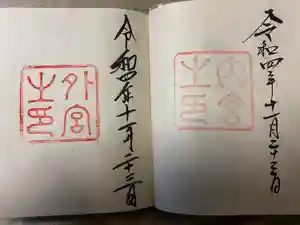 令和四年十一月二十三日
内宮
之印
令和四年十一月二十二日
外宮
之印